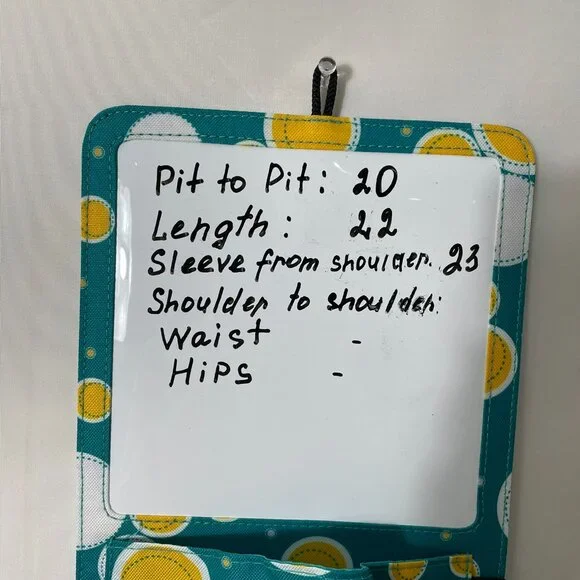 Pit to Pit: 20
Length: 22
Sleeve from shoulder. 23
Shoulder to shoulder:
Waist -
Hips -